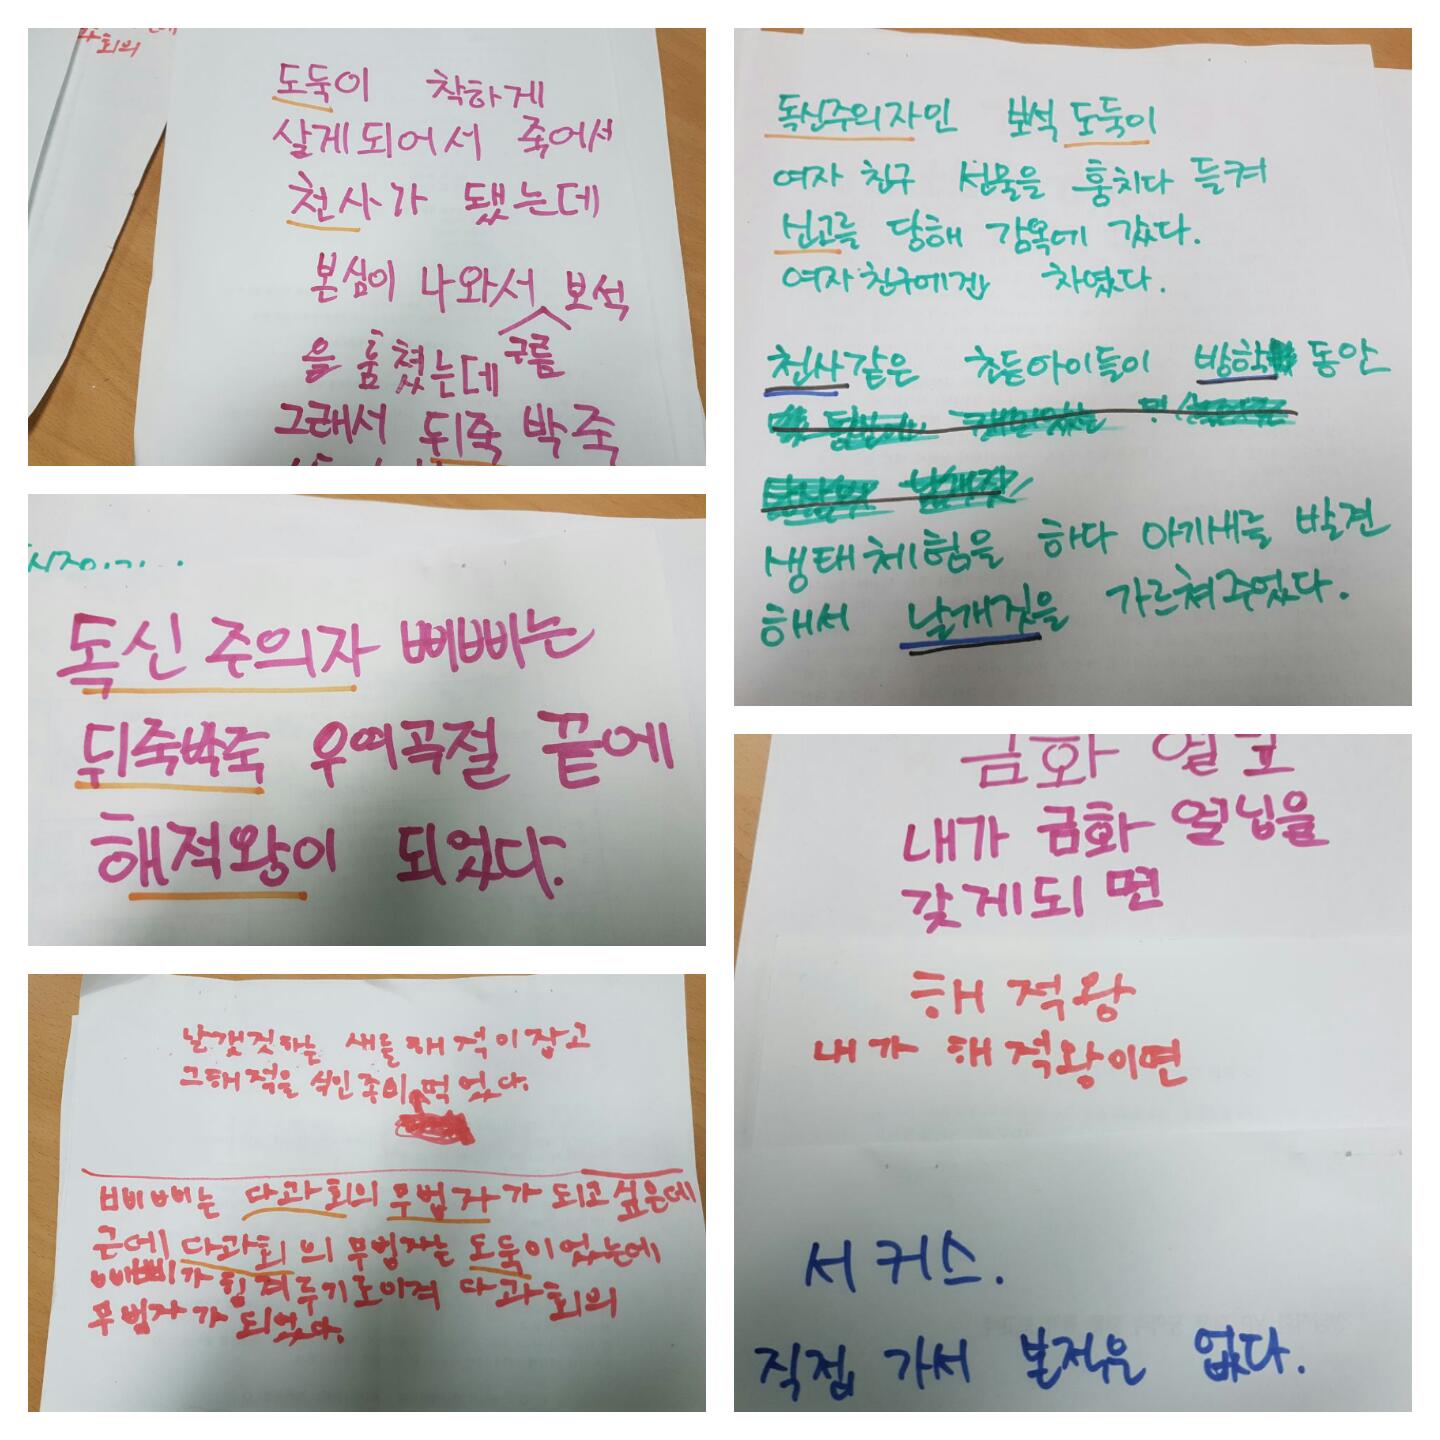 회의
도둑이 착하게
살게되어서 죽어서
천사가 됐는데
본심이 나와서 보석
구름
을 훔쳤는데
그래서 뒤죽 박죽
독신주의자인 보석 도둑이
여자 친구 선물을 훔치다 들켜
신고를 당해 감옥에 갔다.
여자친구에겐 차였다.
천사같은 초등아이들이 방학 동안
생태체험을 하다 아기새를 발견
해서 날개짓을 가르쳐주었다.
독신 주의자 삐삐는
뒤죽박죽 우여곡절 끝에
해적왕이 되었다.
날갯짓하는 새를 해적이 잡고
그해적을 식인종이 먹었다.
삐삐는 다과회의 무법자가 되고싶은데
근데 다과회의 무법자는 도둑이었는데
삐삐가 힘겨루기로이겨 다과회의
무법자가 되었다.
금화 열닢
내가 금화 열닢을
갖게되면
해적왕
내가 해적왕이면
서커스.
직접 가서 본적은 없다.